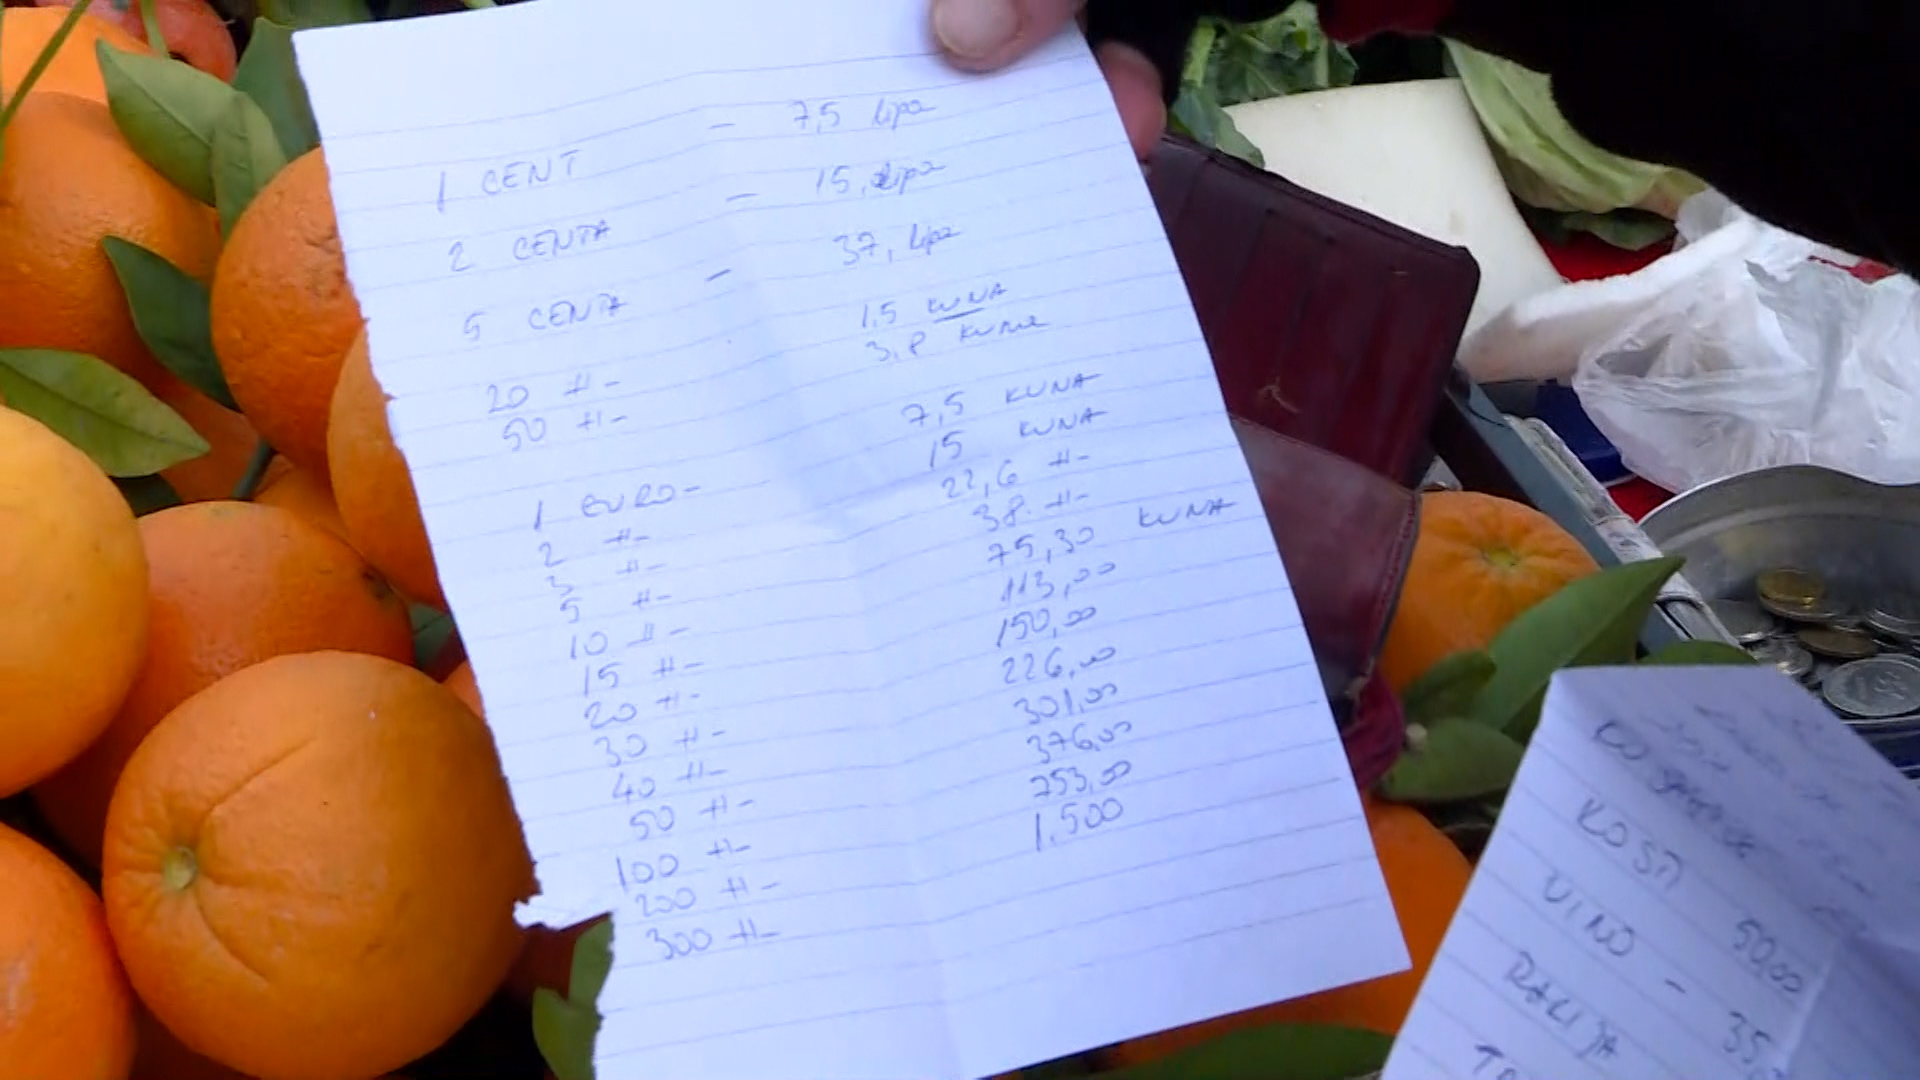 1 CENT - 7,5 lipa
2 CENTA - 15, lipa
5 CENTA - 37, lipa
20 -||- 1,5 KUNA
50 -||- 3,8 KUNA
1 EURO - 7,5 KUNA
2 -||- 15 KUNA
3 -||- 22,6 -||-
5 -||- 38. -||-
10 -||- 75,30 KUNA
15 -||- 113,00
20 -||- 150,00
30 -||- 226,00
40 -||- 301,00
50 -||- 376,00
100 -||- 753,00
200 -||- 1.500
300 -||-
KOSA 50,00
VINO - 35,
RAKIJA